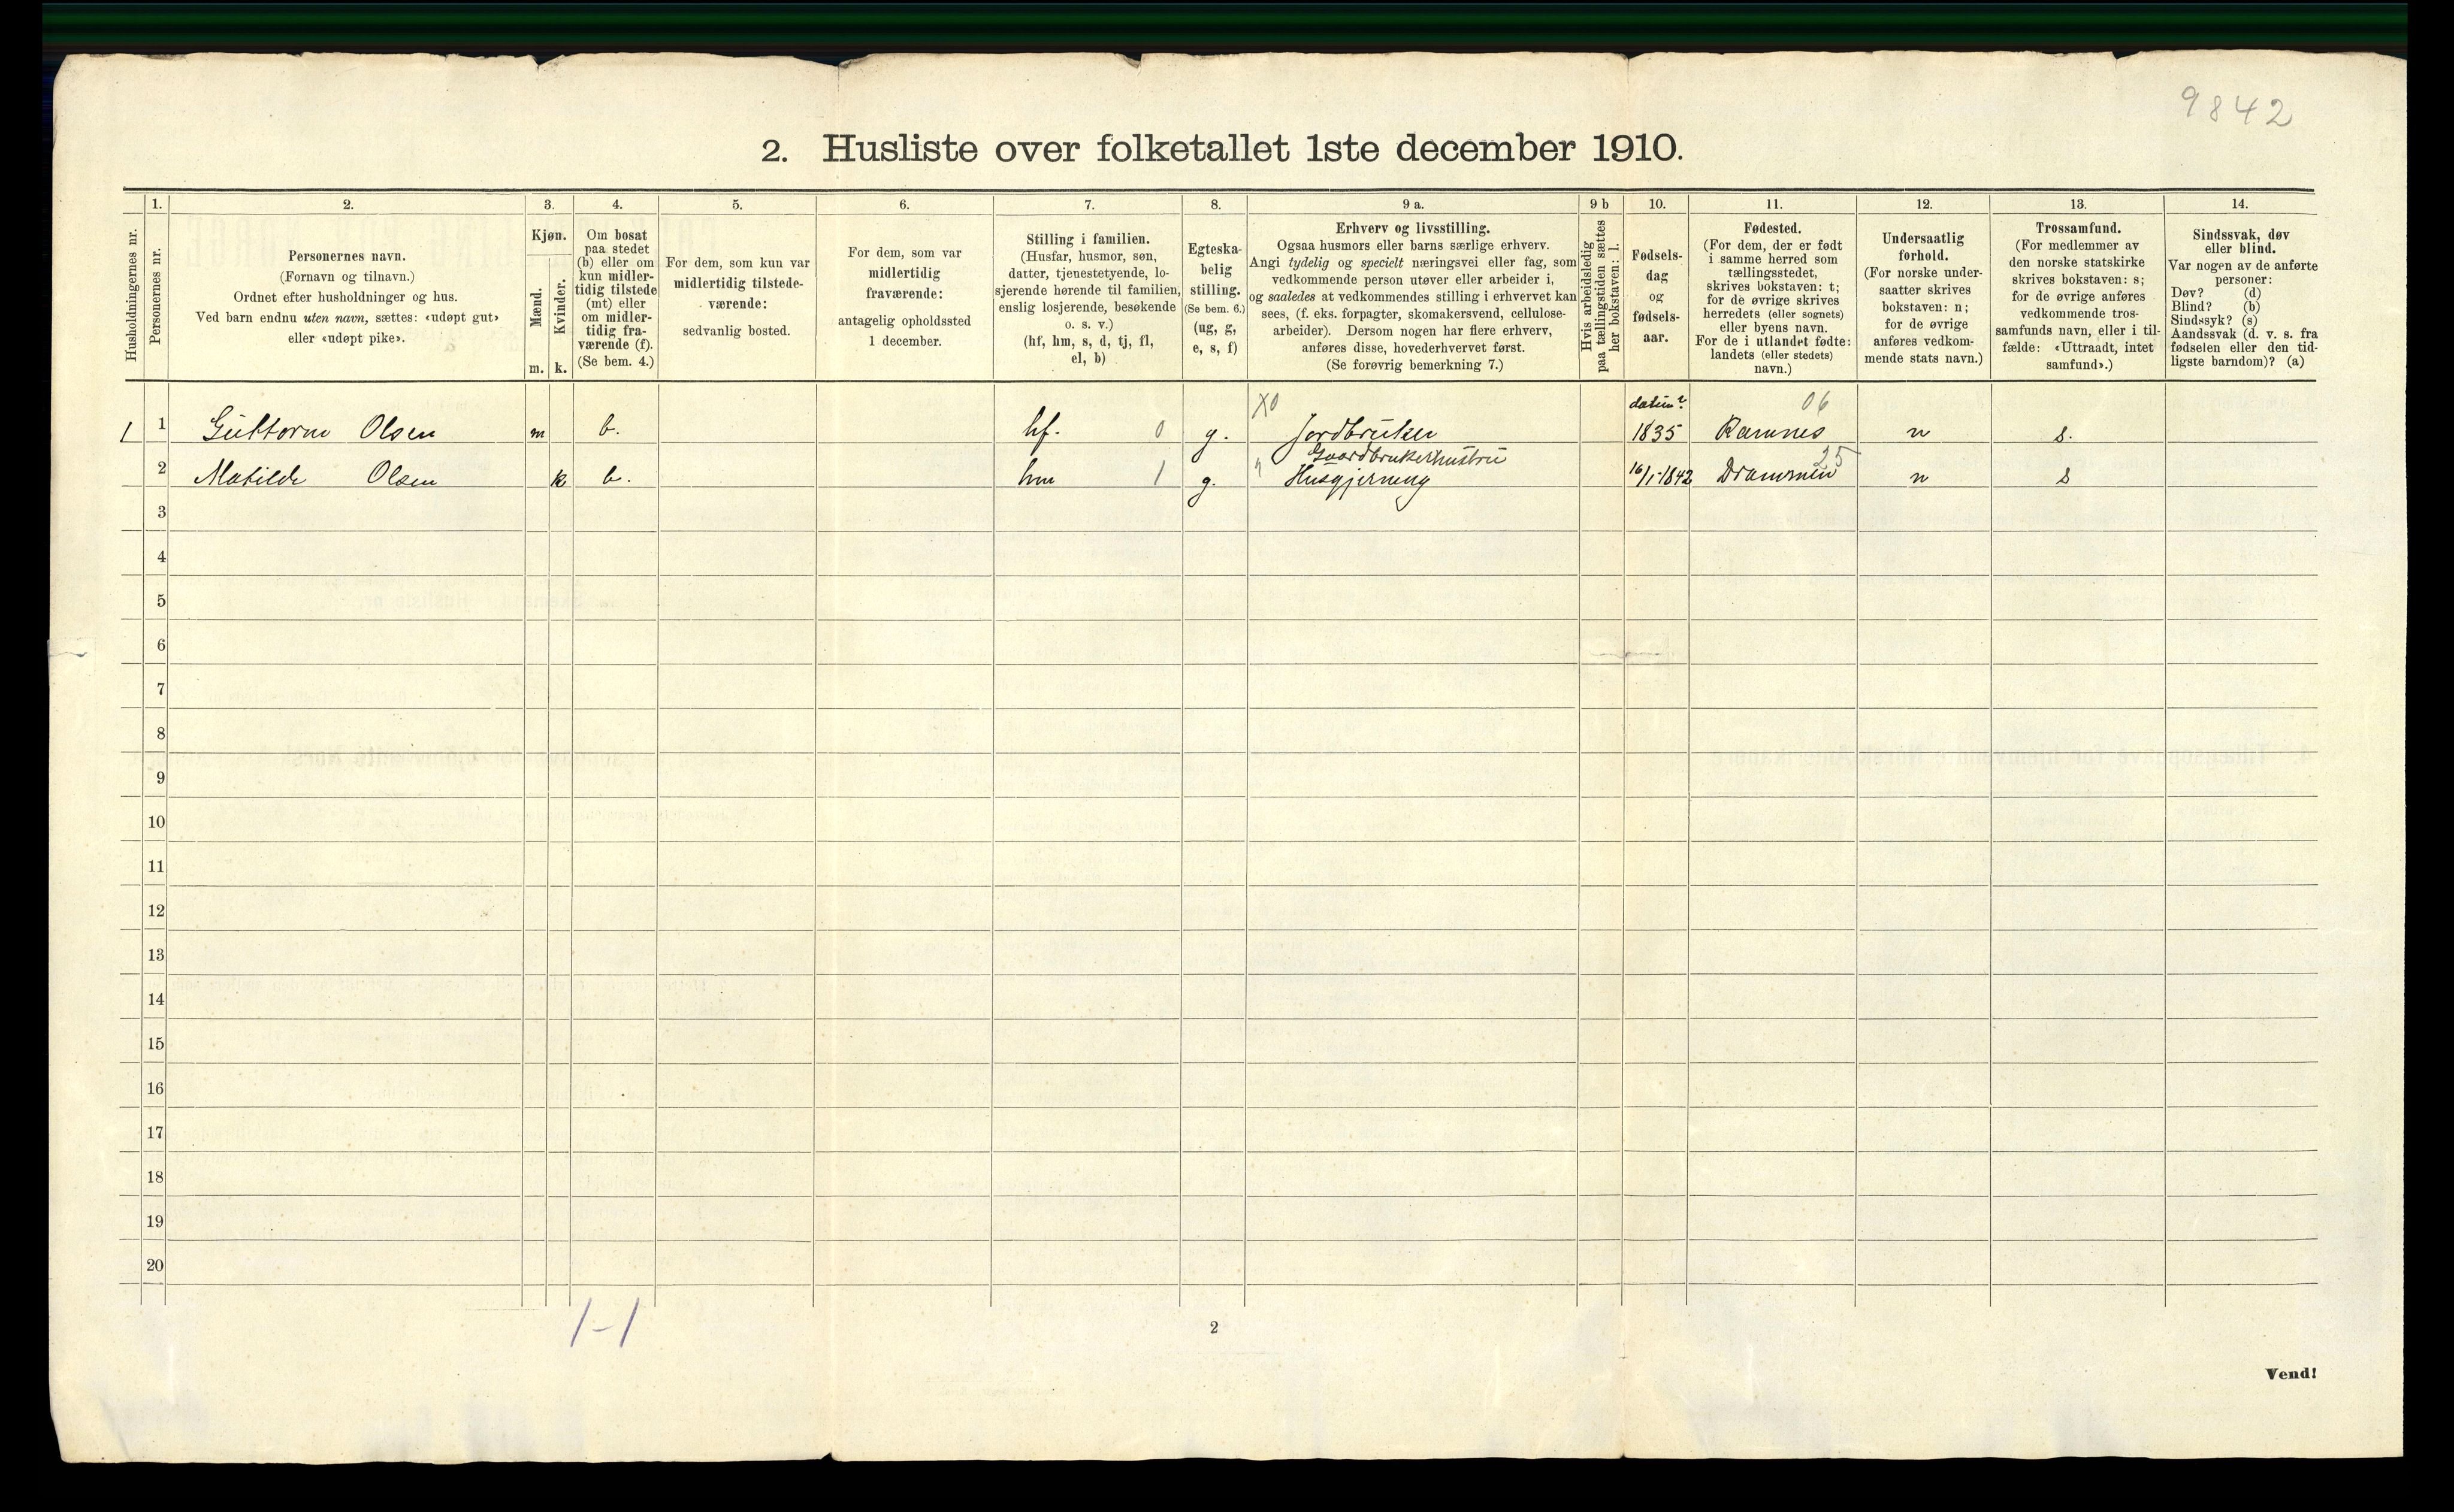 9842
2. Husliste over folketallet 1ste december 1910.
Husholdningernes nr.
1.
Personernes nr.
2.
Personernes navn.
(Fornavn og tilnavn.)
Ordnet efter husholdninger og hus.
Ved barn endnu uten navn, sættes: «udøpt gut»
eller «udøpt pike».
3.
Kjøn.
Mænd.
Kvinder.
m. k.
4.
Om bosat
paa stedet
(b) eller om
kun midler-
tidig tilstede
(mt) eller
om midler-
tidig fra-
værende (f).
(Se bem. 4.)
5.
For dem, som kun var
midlertidig tilstede-
værende:
sedvanlig bosted.
6.
For dem, som var
midlertidig
fraværende:
antagelig opholdssted
1 december.
7.
Stilling i familien.
(Husfar, husmor, søn,
datter, tjenestetyende, lo-
sjerende hørende til familien,
enslig losjerende, besøkende
o. s. v.)
(hf, hm, s, d, tj, fl,
el, b)
8.
Egteska-
belig
stilling.
(Se bem. 6.)
(ug, g,
e, s, f)
9 a.
Erhverv og livsstilling.
Ogsaa husmors eller barns særlige erhverv.
Angi tydelig og specielt næringsvei eller fag, som
vedkommende person utøver eller arbeider i,
og saaledes at vedkommendes stilling i erhvervet kan
sees, (f. eks. forpagter, skomakersvend, cellulose-
arbeider). Dersom nogen har flere erhverv,
anføres disse, hovederhvervet først.
(Se forøvrig bemerkning 7.)
9 b
Hvis arbeidsledig
paa tællingstiden sættes
her bokstaven: l.
10.
Fødsels-
dag
og
fødsels-
aar.
11.
Fødested.
(For dem, der er født
i samme herred som
tællingsstedet,
skrives bokstaven: t;
for de øvrige skrives
herredets (eller sognets)
eller byens navn.
For de i utlandet fødte:
landets (eller stedets)
navn.)
12.
Undersaatlig
forhold.
(For norske under-
saatter skrives
bokstaven: n;
for de øvrige
anføres vedkom-
mende stats navn.)
13.
Trossamfund.
(For medlemmer av
den norske statskirke
skrives bokstaven: s;
for de øvrige anføres
vedkommende tros-
samfunds navn, eller i til-
fælde: «Uttraadt, intet
samfund».)
14.
Sindssvak, døv
eller blind.
Var nogen av de anførte
personer:
Døv? (d)
Blind? (b)
Sindssyk? (s)
Aandssvak (d. v. s. fra
fødselen eller den tid-
ligste barndom)? (a)
X0 datum? 06
1 1 Guttorm Olsen m b. hf. 0 g. Jordbruker 1835 Ramnes n s.
Gaardbrukerhustru 25
2 Matilde Olsen k b. hm 1 g. Husgjerning 16/1-1842 Drammen n s
3
4
5
6
7
8
9
10
11
12
13
14
15
16
17
18
19
20
1-1
2
Vend!